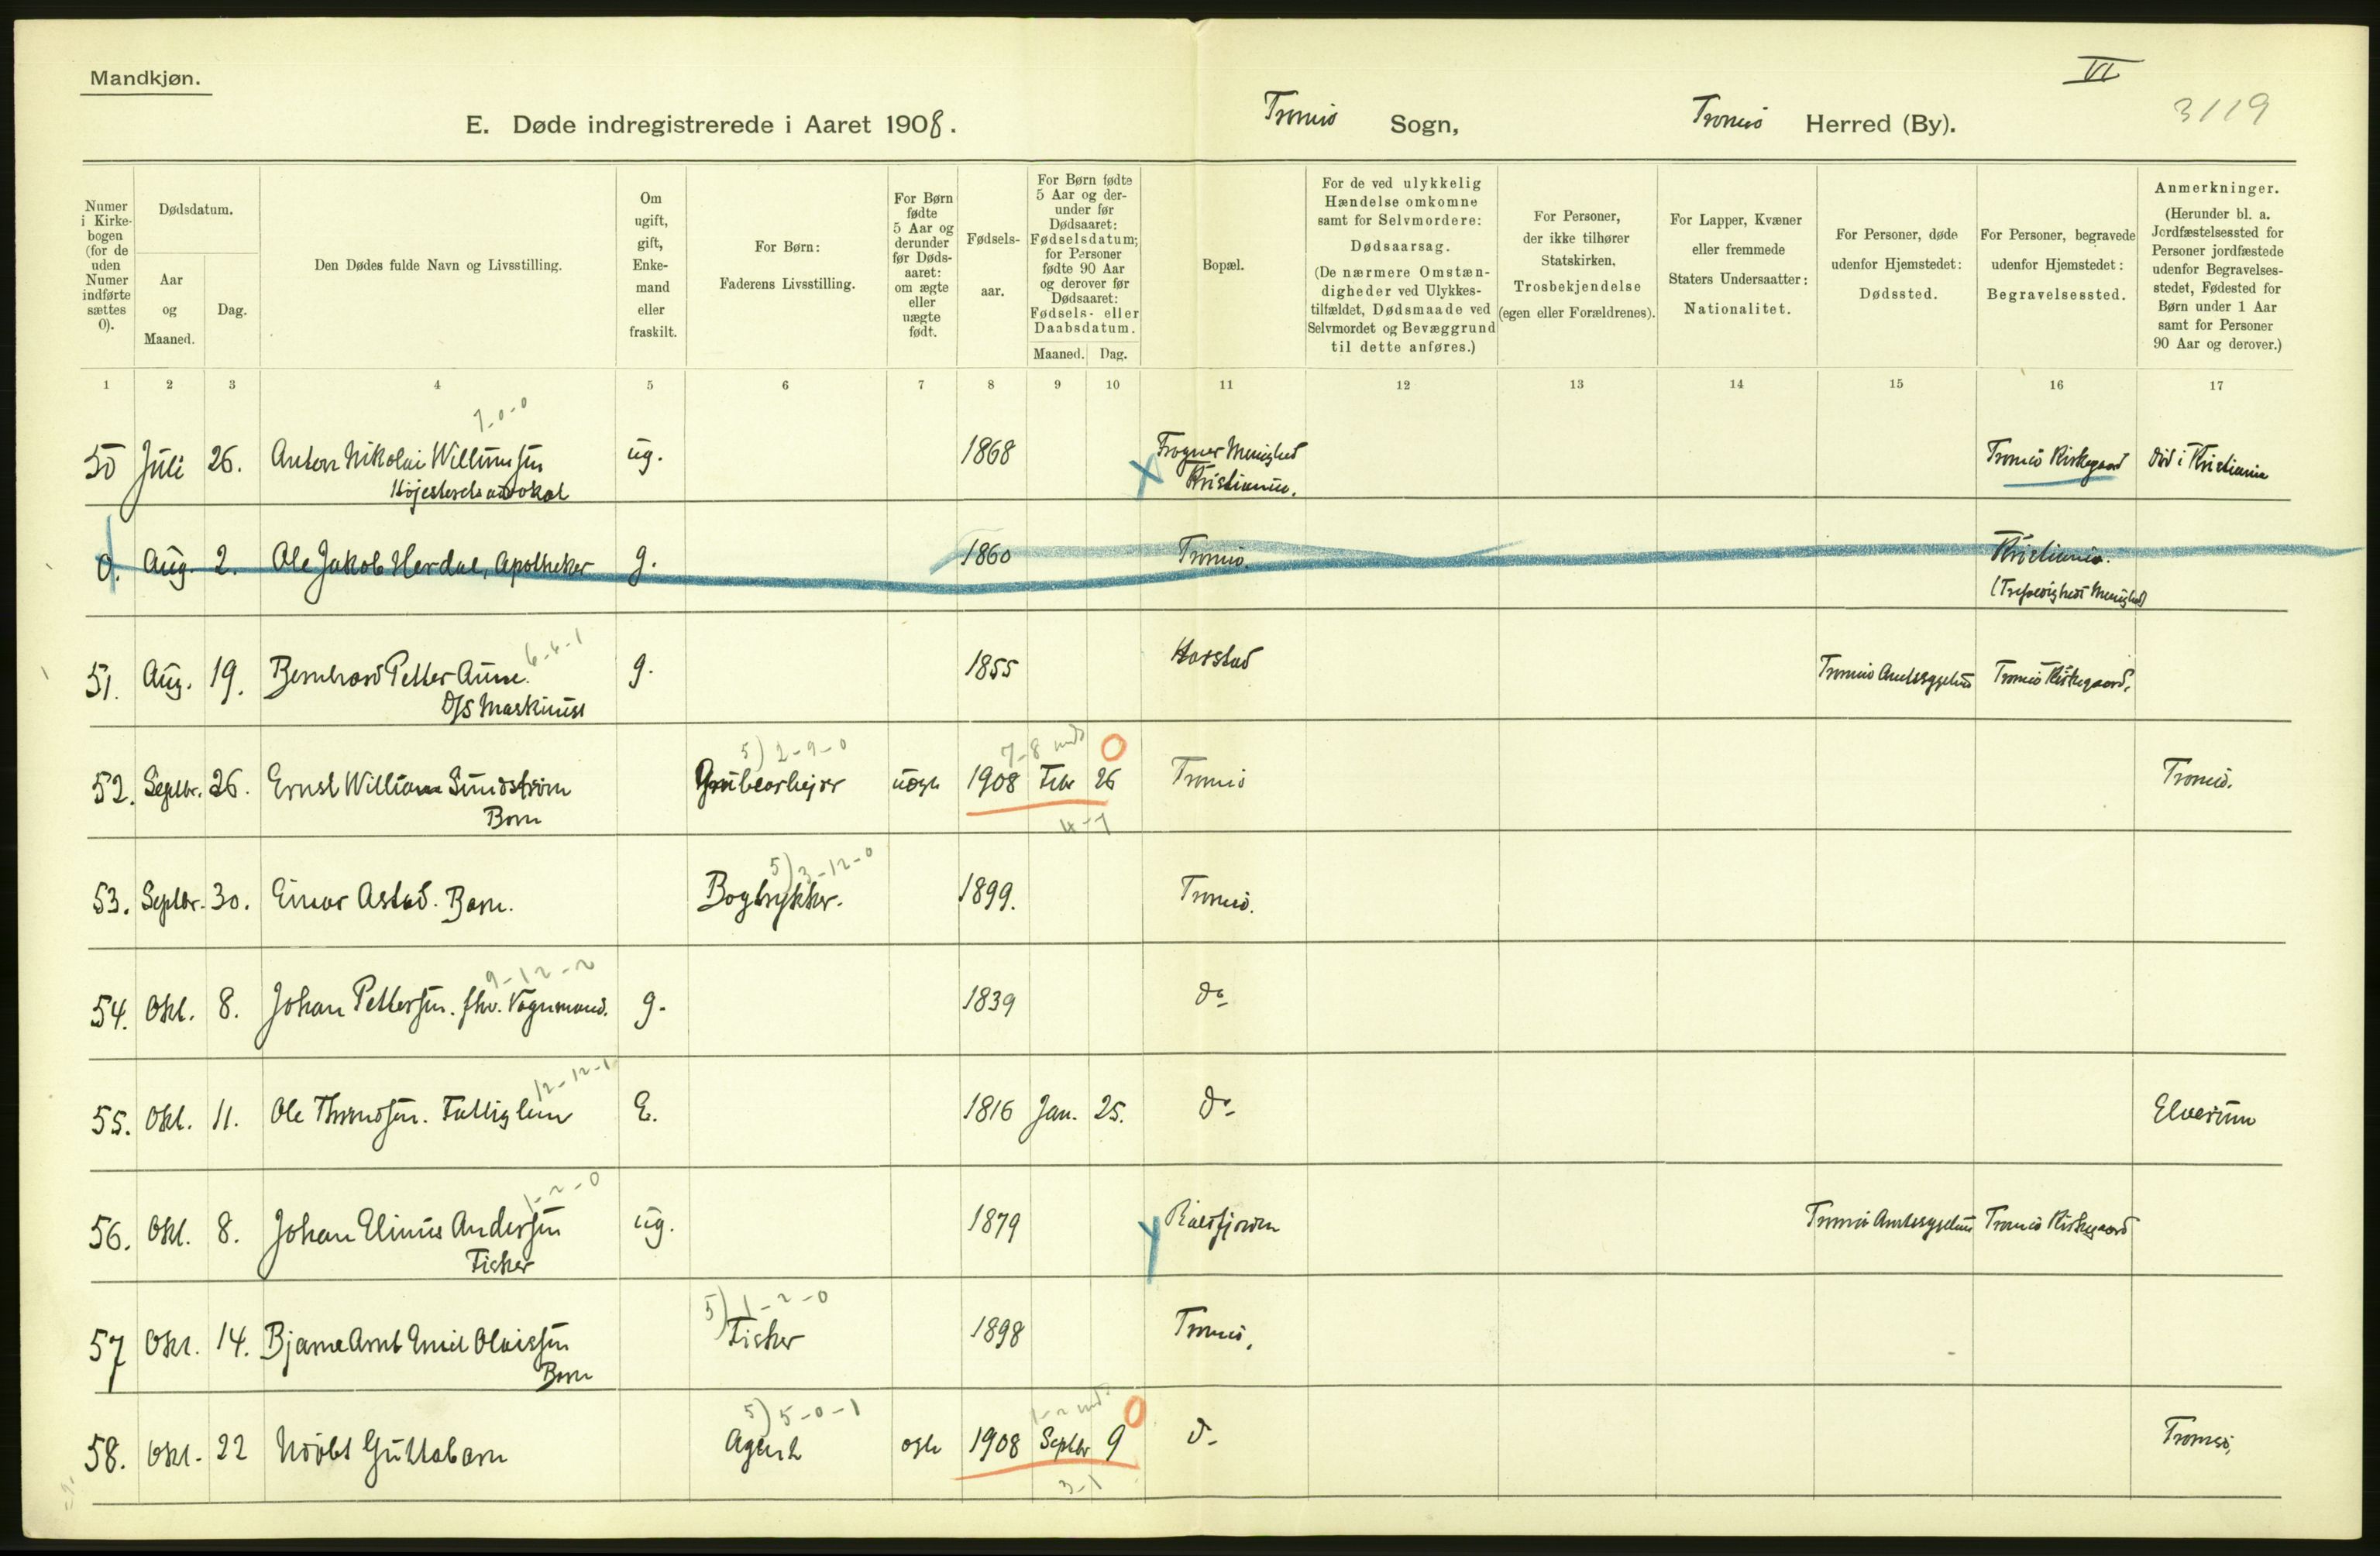 Mandkjøn.
VI
E. Døde indregistrerede i Aaret 1908. Tromsø Sogn, Tromsø Herred (By). 3119
Numer i Kirke-bogen (for de uden Numer indførte sættes 0).
Dødsdatum.
Aar og Maaned.
Dag.
Den Dødes fulde Navn og Livsstilling.
Om ugift, gift, Enke-mand eller fraskilt.
For Børn: Faderens Livsstilling.
For Børn fødte 5 Aar og derunder før Døds-aaret: om ægte eller uægte født.
Fødsels-aar.
For Børn fødte 5 Aar og der-under før Dødsaaret: Fødselsdatum; for Personer fødte 90 Aar og derover før Dødsaaret: Fødsels- eller Daabsdatum.
Maaned. Dag.
Bopæl.
For de ved ulykkelig Hændelse omkomne samt for Selvmordere: Dødsaarsag. (De nærmere Omstæn-digheder ved Ulykkes-tilfældet, Dødsmaade ved Selvmordet og Bevæggrund til dette anføres.)
For Personer, der ikke tilhører Statskirken, Trosbekjendelse (egen eller Forældrenes).
For Lapper, Kvæner eller fremmede Staters Undersaatter: Nationalitet.
For Personer, døde udenfor Hjemstedet: Dødssted.
For Personer, begravede udenfor Hjemstedet: Begravelsessted.
Anmerkninger. (Herunder bl. a. Jordfæstelsessted for Personer jordfæstede udenfor Begravelses-stedet, Fødested for Børn under 1 Aar samt for Personer 90 Aar og derover.)
1 2 3 4 5 6 7 8 9 10 11 12 13 14 15 16 17
7-0-0
50 Juli 26. Anton Nikolai Willumsen ug. 1868 Frogner Menighed Tromsø Kirkegaard død i Kristiania
Høiesteretsadvokat Kristiania.
0. Aug. 2. Ole Jakob Herdal, Apotheker g. 1860 Tromsø. Kristiania.
(Trefoldigheds Menighed)
6-6-1
51. Aug. 19. Bernhard Petter Aune. g. 1855 Harstad Tromsø Amtssygehus Tromsø Kirkegaard.
D/S Maskinist
5) 2-9-0 7-8 md 0
52. Septbr. 26. Ernst William Sundstrøm Grubearbejder uægte 1908 Febr 26 Tromsø Tromsø.
Barn 4-7
5) 3-12-0
53. Septbr. 30. Einar Astad. Barn. Bogtrykker. 1899. Tromsø.
9-12-2
54. Okt. 8. Johan Pettersen. fhv. Vognmand. g. 1839 do
12-12-1
55. Okt. 11. Ole Thomsen. Fattiglem E. 1816 Jan. 25. do Elverum
1-2-0
56. Okt. 8. Johan Elinus Andersen ug. 1879 Balsfjorden Tromsø Amtssygehus Tromsø Kirkegaard
Fisker
5) 1-2-0
57 Okt. 14. Bjarne Arnt Emil Olaissen Fisker 1898 Tromsø.
Barn
5) 5-0-1 1-2 md 0
58. Okt. 22 Udøbt Guttebarn Agent ægte 1908 Septbr 9 do Tromsø.
3-1